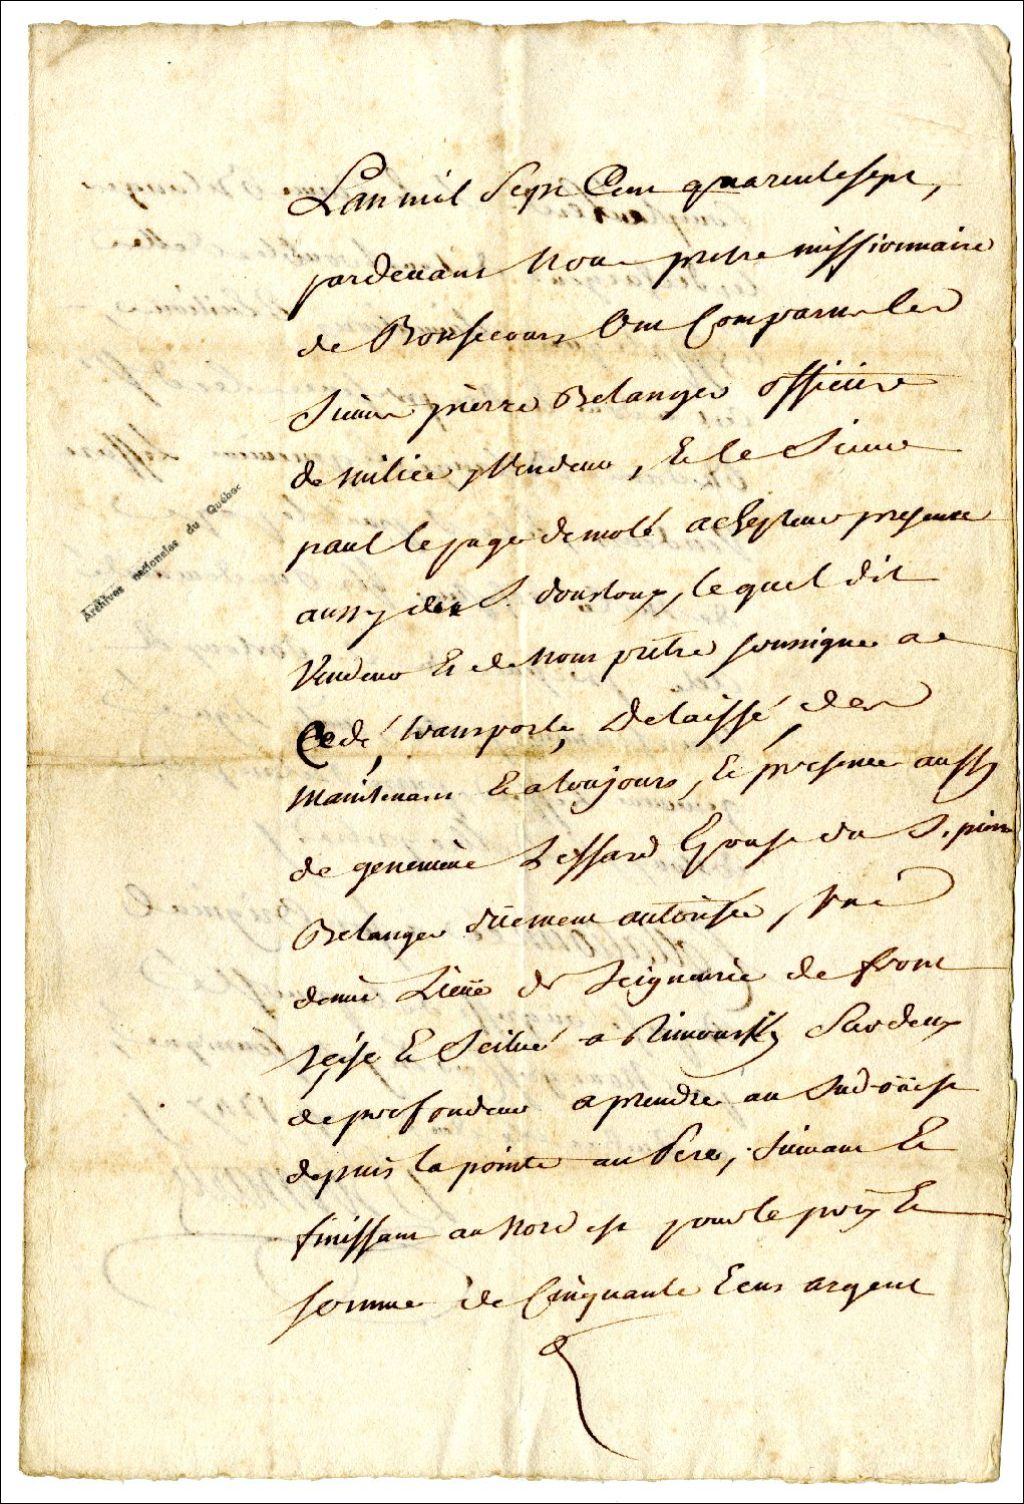 L'an mil Sept Cent quarente sept,
pardevant Nous pretre missionnaire
de Bonsecours Ont Comparu les
Sieurs pierre Belanger officier
de milice Vendeur, Et le Sieur
paul le page de molé achepteur presence
aussy du S. doucloup, le quel dit
Vendeur Et de Nous prêtre soussigné a
Cedé, transporte, Delaissé, des
Maintenant Et a toujours, Et presence aussy
de genevieve Lessard Epouse du S. pierre
Belanger dûement autorisée, une
demie Lieuë de Seigneurie de front
seise Et Scitué a Rimousky Sur deux
de profondeur a prendre au Sud-oüest
depuis la pointe au Pere, suivant Et
finissant au Nord est pour le prix Et
somme de Cinquante Ecus argent
Archives nationales du Québec